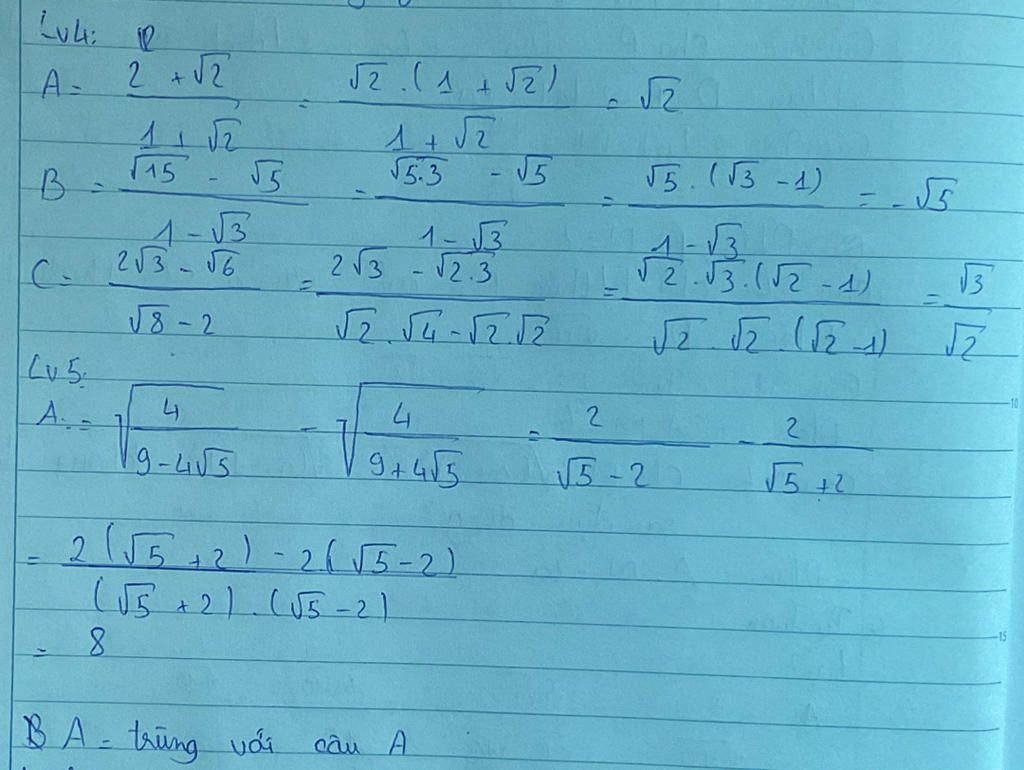 Lv4:
A = (2 + √2)/(1 + √2) = (√2 . (1 + √2))/(1 + √2) = √2
B = (√15 - √5)/(1 - √3) = (√5.3 - √5)/(1 - √3) = (√5 . (√3 - 1))/(1 - √3) = -√5
C = (2√3 - √6)/(√8 - 2) = (2√3 - √2.3)/(√2 . √4 - √2.√2) = (√2 . √3 . (√2 - 1))/(√2 . √2 . (√2 - 1)) = √3/√2
Lv5:
A = √(4/(9 - 4√5)) - √(4/(9 + 4√5)) = 2/(√5 - 2) - 2/(√5 + 2)
= (2(√5 + 2) - 2(√5 - 2))/((√5 + 2) . (√5 - 2))
= 8
B A = trùng với câu A